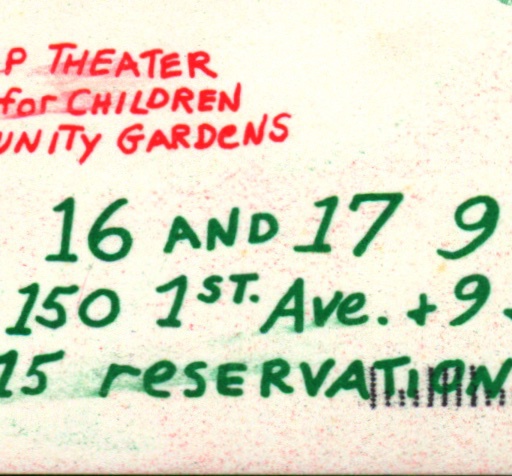 P THEATER
for CHILDREN
UNITY GARDENS
16 AND 17 9
150 1ST. Ave. + 9
15 reSERVATION